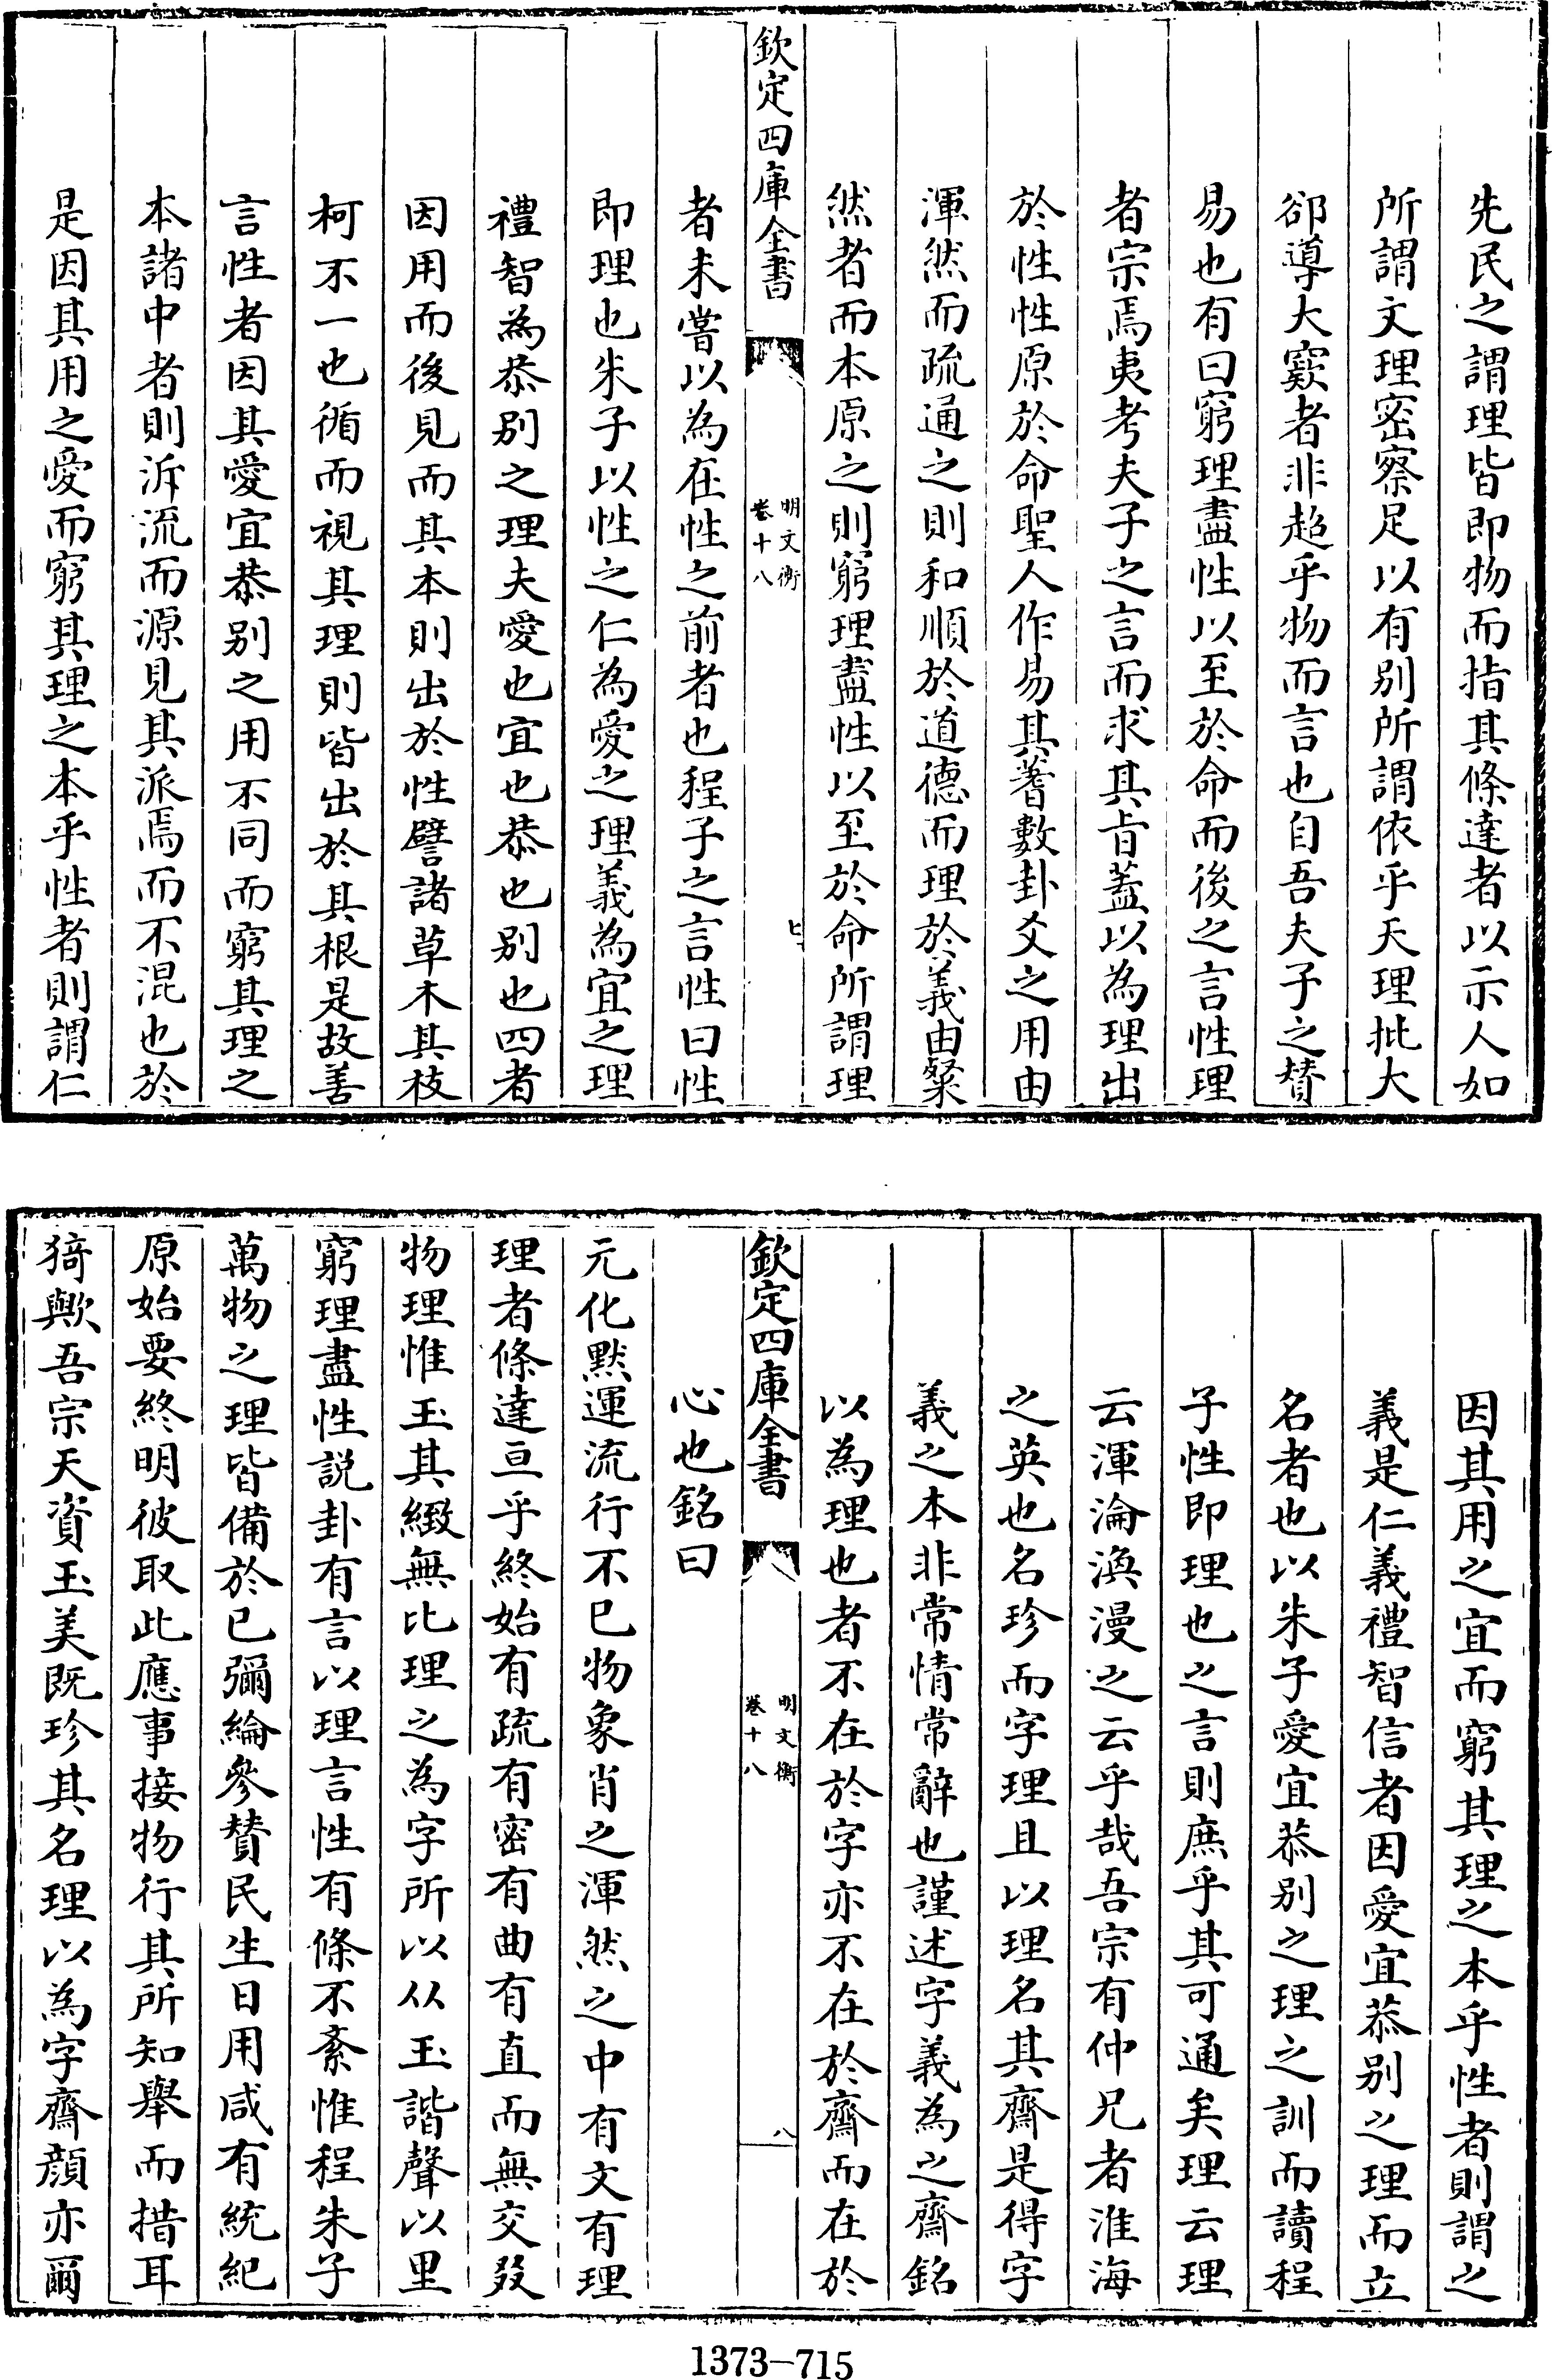 先民之謂理皆即物而指其條達者以示人如
所謂文理密察足以有别所謂依乎天理批大
郤導大窾者非超乎物而言也自吾夫子之賛
易也有曰窮理盡性以至於命而後之言性理
者宗焉夷考夫子之言而求其㫖蓋以為理出
於性性原於命聖人作易其蓍數卦爻之用由
渾然而疏通之則和順於道德而理於義由粲
然者而本原之則窮理盡性以至於命所謂理
欽定四庫全書
明文衡
卷十八
七
者未嘗以為在性之前者也程子之言性曰性
即理也朱子以性之仁為愛之理義為宜之理
禮智為恭别之理夫愛也宜也恭也别也四者
因用而後見而其本則出於性譬諸草木其枝
柯不一也循而視其理則皆出於其根是故善
言性者因其愛宜恭别之用不同而窮其理之
本諸中者則泝流而源見其派焉而不混也於
是因其用之愛而窮其理之本乎性者則謂仁
因其用之宜而窮其理之本乎性者則謂之
義是仁義禮智信者因愛宜恭别之理而立
名者也以朱子愛宜恭别之理之訓而讀程
子性即理也之言則庶乎其可通矣理云理
云渾淪渙漫之云乎哉吾宗有仲兄者淮海
之英也名珍而字理且以理名其齋是得字
義之本非常情常辭也謹述字義為之齋銘
以為理也者不在於字亦不在於齋而在於
欽定四庫全書
明文衡
卷十八
八
心也銘曰
元化黙運流行不已物象肖之渾然之中有文有理
理者條達亘乎終始有疏有密有曲有直而無交㸚
物理惟玉其緻無比理之為字所以从玉諧聲以里
窮理盡性説卦有言以理言性有條不紊惟程朱子
萬物之理皆備於已彌綸參賛民生日用咸有統紀
原始要終明彼取此應事接物行其所知舉而措耳
猗歟吾宗天資玉美既珍其名理以為字齋顔亦爾
1373—715